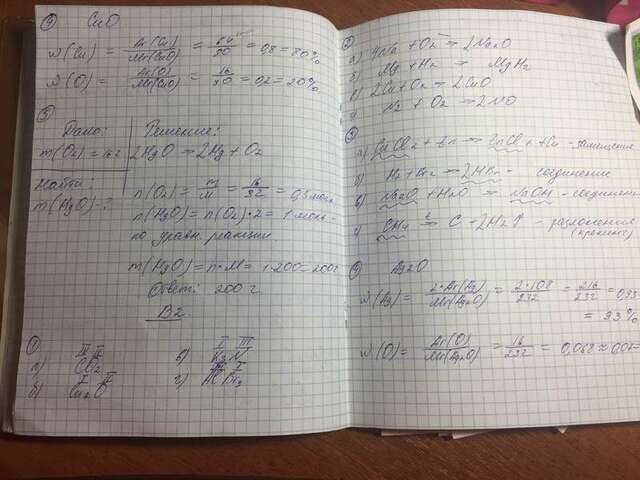 ④ CuO
w(Cu) = Ar(Cu)/Mr(CuO) = 64/80 = 0,8 = 80%
w(O) = Ar(O)/Mr(CuO) = 16/80 = 0,2 = 20%
⑤
Дано: Решение:
m(O₂) = 16г 2HgO = 2Hg + O₂
Найти:
m(HgO) - ?
n(O₂) = m/M = 16/32 = 0,5 моль
n(HgO) = n(O₂)·2 = 1 моль -
по уравн. реакции.
m(HgO) = n·M = 1·200 = 200г
Ответ: 200 г
В2.
①
а) CO₂ б) K₃N
б) Cu₂O г) AlBr₃
②
а) 4Na + O₂ = 2Na₂O
б) Mg + H₂ = MgH₂
в) 2Cu + O₂ = 2CuO
г) N₂ + O₂ = 2NO
③
а) + Zn = + Cu - замещение
б) H₂ + Br₂ = 2HBr - соединение
в) Na₂O + H₂O = NaOH - соединение
г) CH₄ = C + 2H₂↑ - разложение
(крекинг)
④ Ag₂O
w(Ag) = 2·Ar(Ag)/Mr(Ag₂O) = 2·108/232 = 216/232 = 0,93
= 93%
w(O) = Ar(O)/Mr(Ag₂O) = 16/232 = 0,068 ≈ 0,07 =